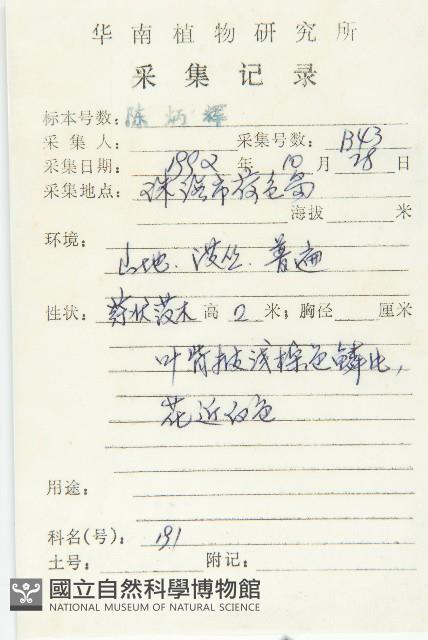 华南植物研究所
采集记录
标本号数：陈炳辉
采集人： 采集号数：B43
采集日期：1992年10月28日
采集地点：珠海市荷包岛
海拔 米
环境：
山地、灌丛、普遍
性状：藤状灌木高2米；胸径 厘米
叶背被浅棕色鳞片，
花近白色
用途：
科名(号)：191
土号： 附记：
國立自然科學博物館
NATIONAL MUSEUM OF NATURAL SCIENCE